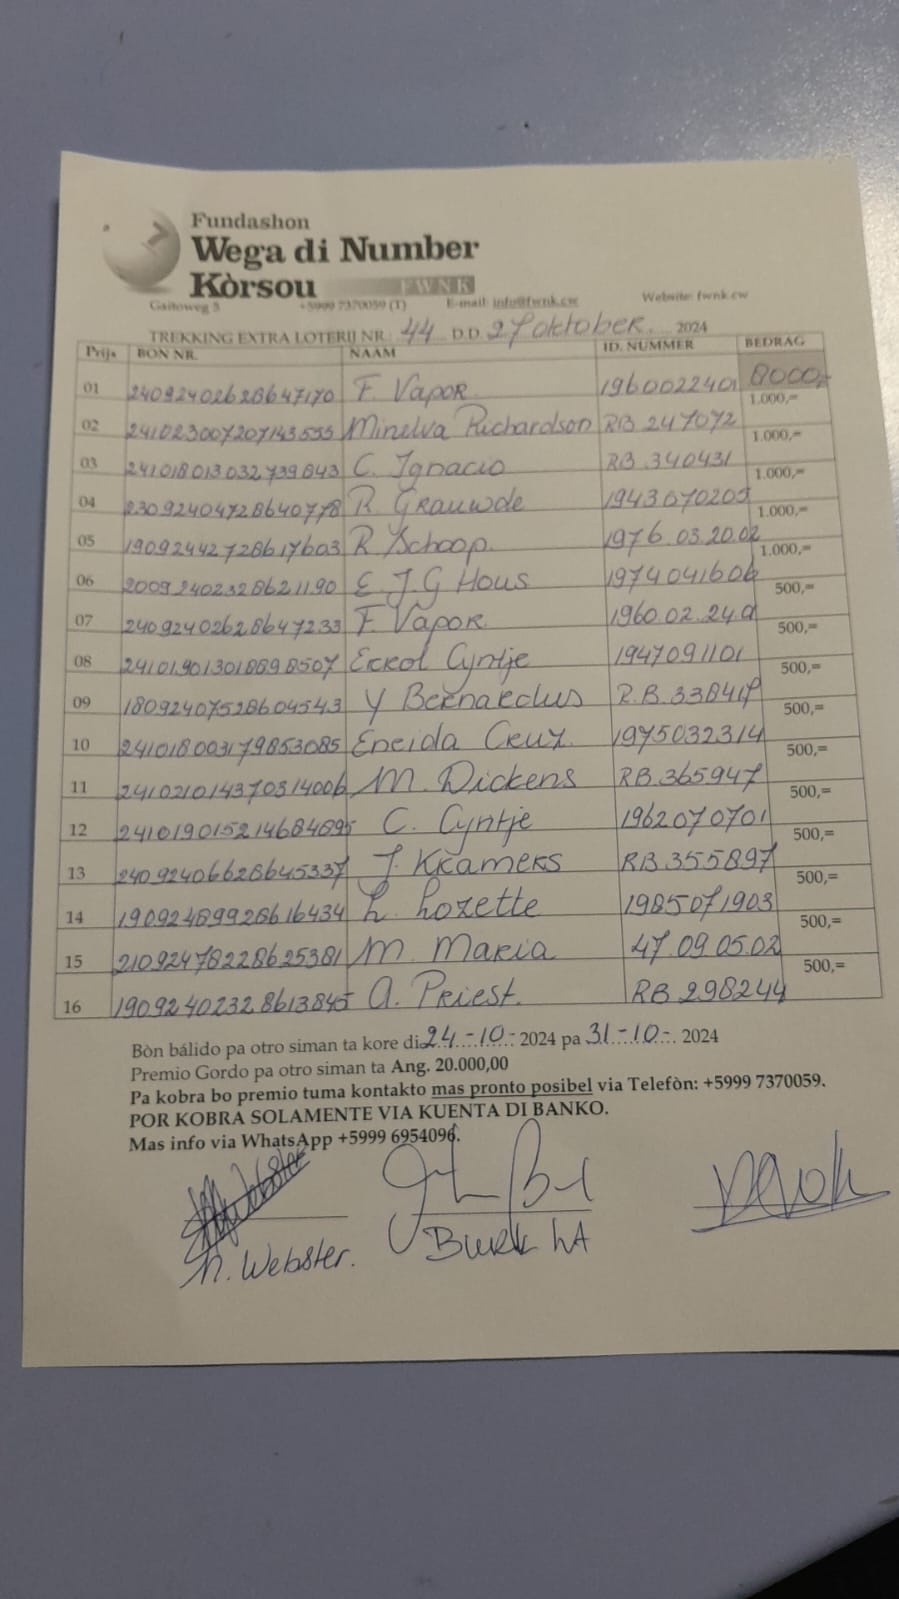 Fundashon
Wega di Number
Kòrsou FWNK
Gaitoweg 5 +5999 7370059 (T) E-mail: info@fwnk.cw Website: fwnk.cw
TREKKING EXTRA LOTERIJ NR. 44 D.D. 27 oktober 2024
Prijs BON NR. NAAM ID. NUMMER BEDRAG
01 24092402628647170 F. Vapor 1960022401 8000,-
02 241023007207143555 Minelva Richardson RB 247072 1.000,=
03 241018013032739843 C. Ignacio RB 340431 1.000,=
04 23092404728640778 R. Grauwde 1943070205 1.000,=
05 19092442728617603 R Schoop. 1976.03.20.02 1.000,=
06 20092402328621190 E J.G Hous 1974041606 1.000,=
07 24092402628647233 F. Vapor 1960.02.24.01 500,=
08 241019013018698507 Errol Cyntje 1947091101 500,=
09 18092407528604543 Y Bernardus R.B.338419 500,=
10 241018003179853085 Eneida Cruz. 1975032314 500,=
11 241021014370314006 M. Dickens RB.365947 500,=
12 241019015214684695 C. Cyntje 1962070701 500,=
13 24092406628645337 J. Kramers RB 355897 500,=
14 19092489928616434 L. Lozette 1985071903 500,=
15 21092478228625381 M. Maria 47.09.05.02 500,=
16 19092402328613845 A. Priest. RB 298244 500,=
Bòn bálido pa otro siman ta kore di 24-10- 2024 pa 31-10-. 2024
Premio Gordo pa otro siman ta Ang. 20.000,00
Pa kobra bo premio tuma kontakto mas pronto posibel via Telefòn: +5999 7370059.
POR KOBRA SOLAMENTE VIA KUENTA DI BANKO.
Mas info via WhatsApp +5999 6954096.
N. Webster. Burk LA